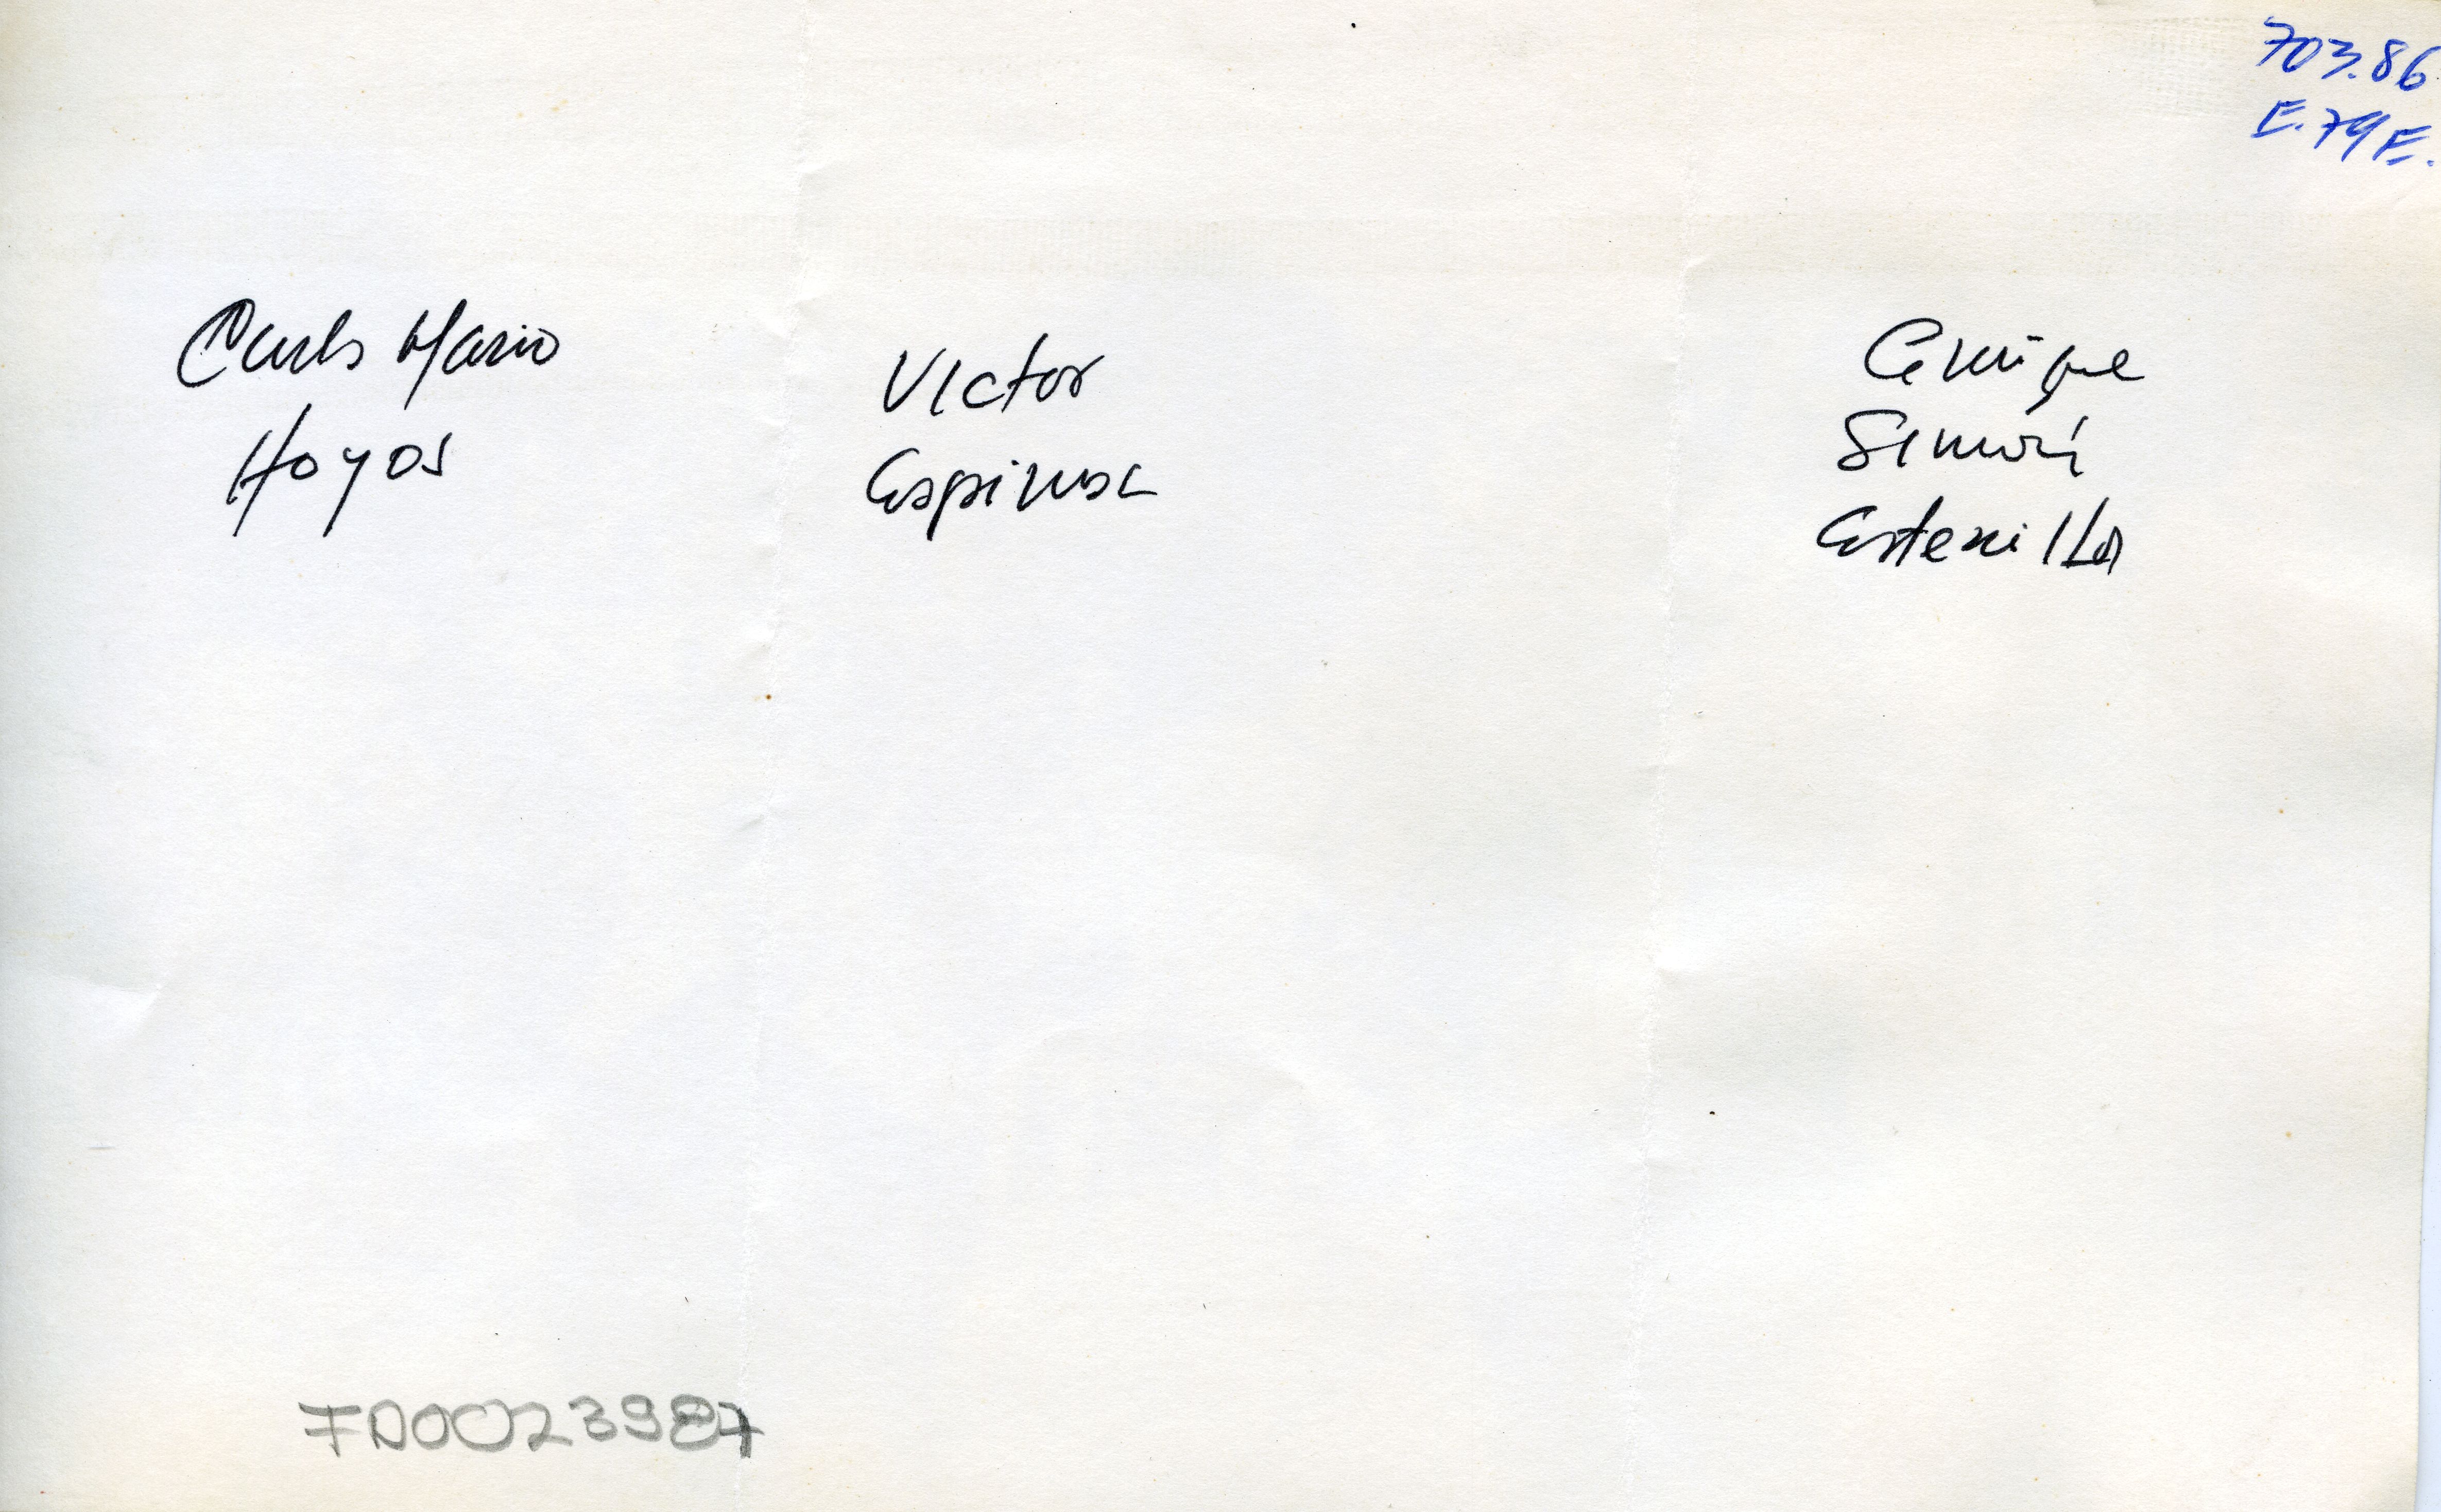 703.86
E.79E.
Carlos Mario
Hoyos
Victor
Espinosa
Enrique
Simón
Estenilla
FD0023987